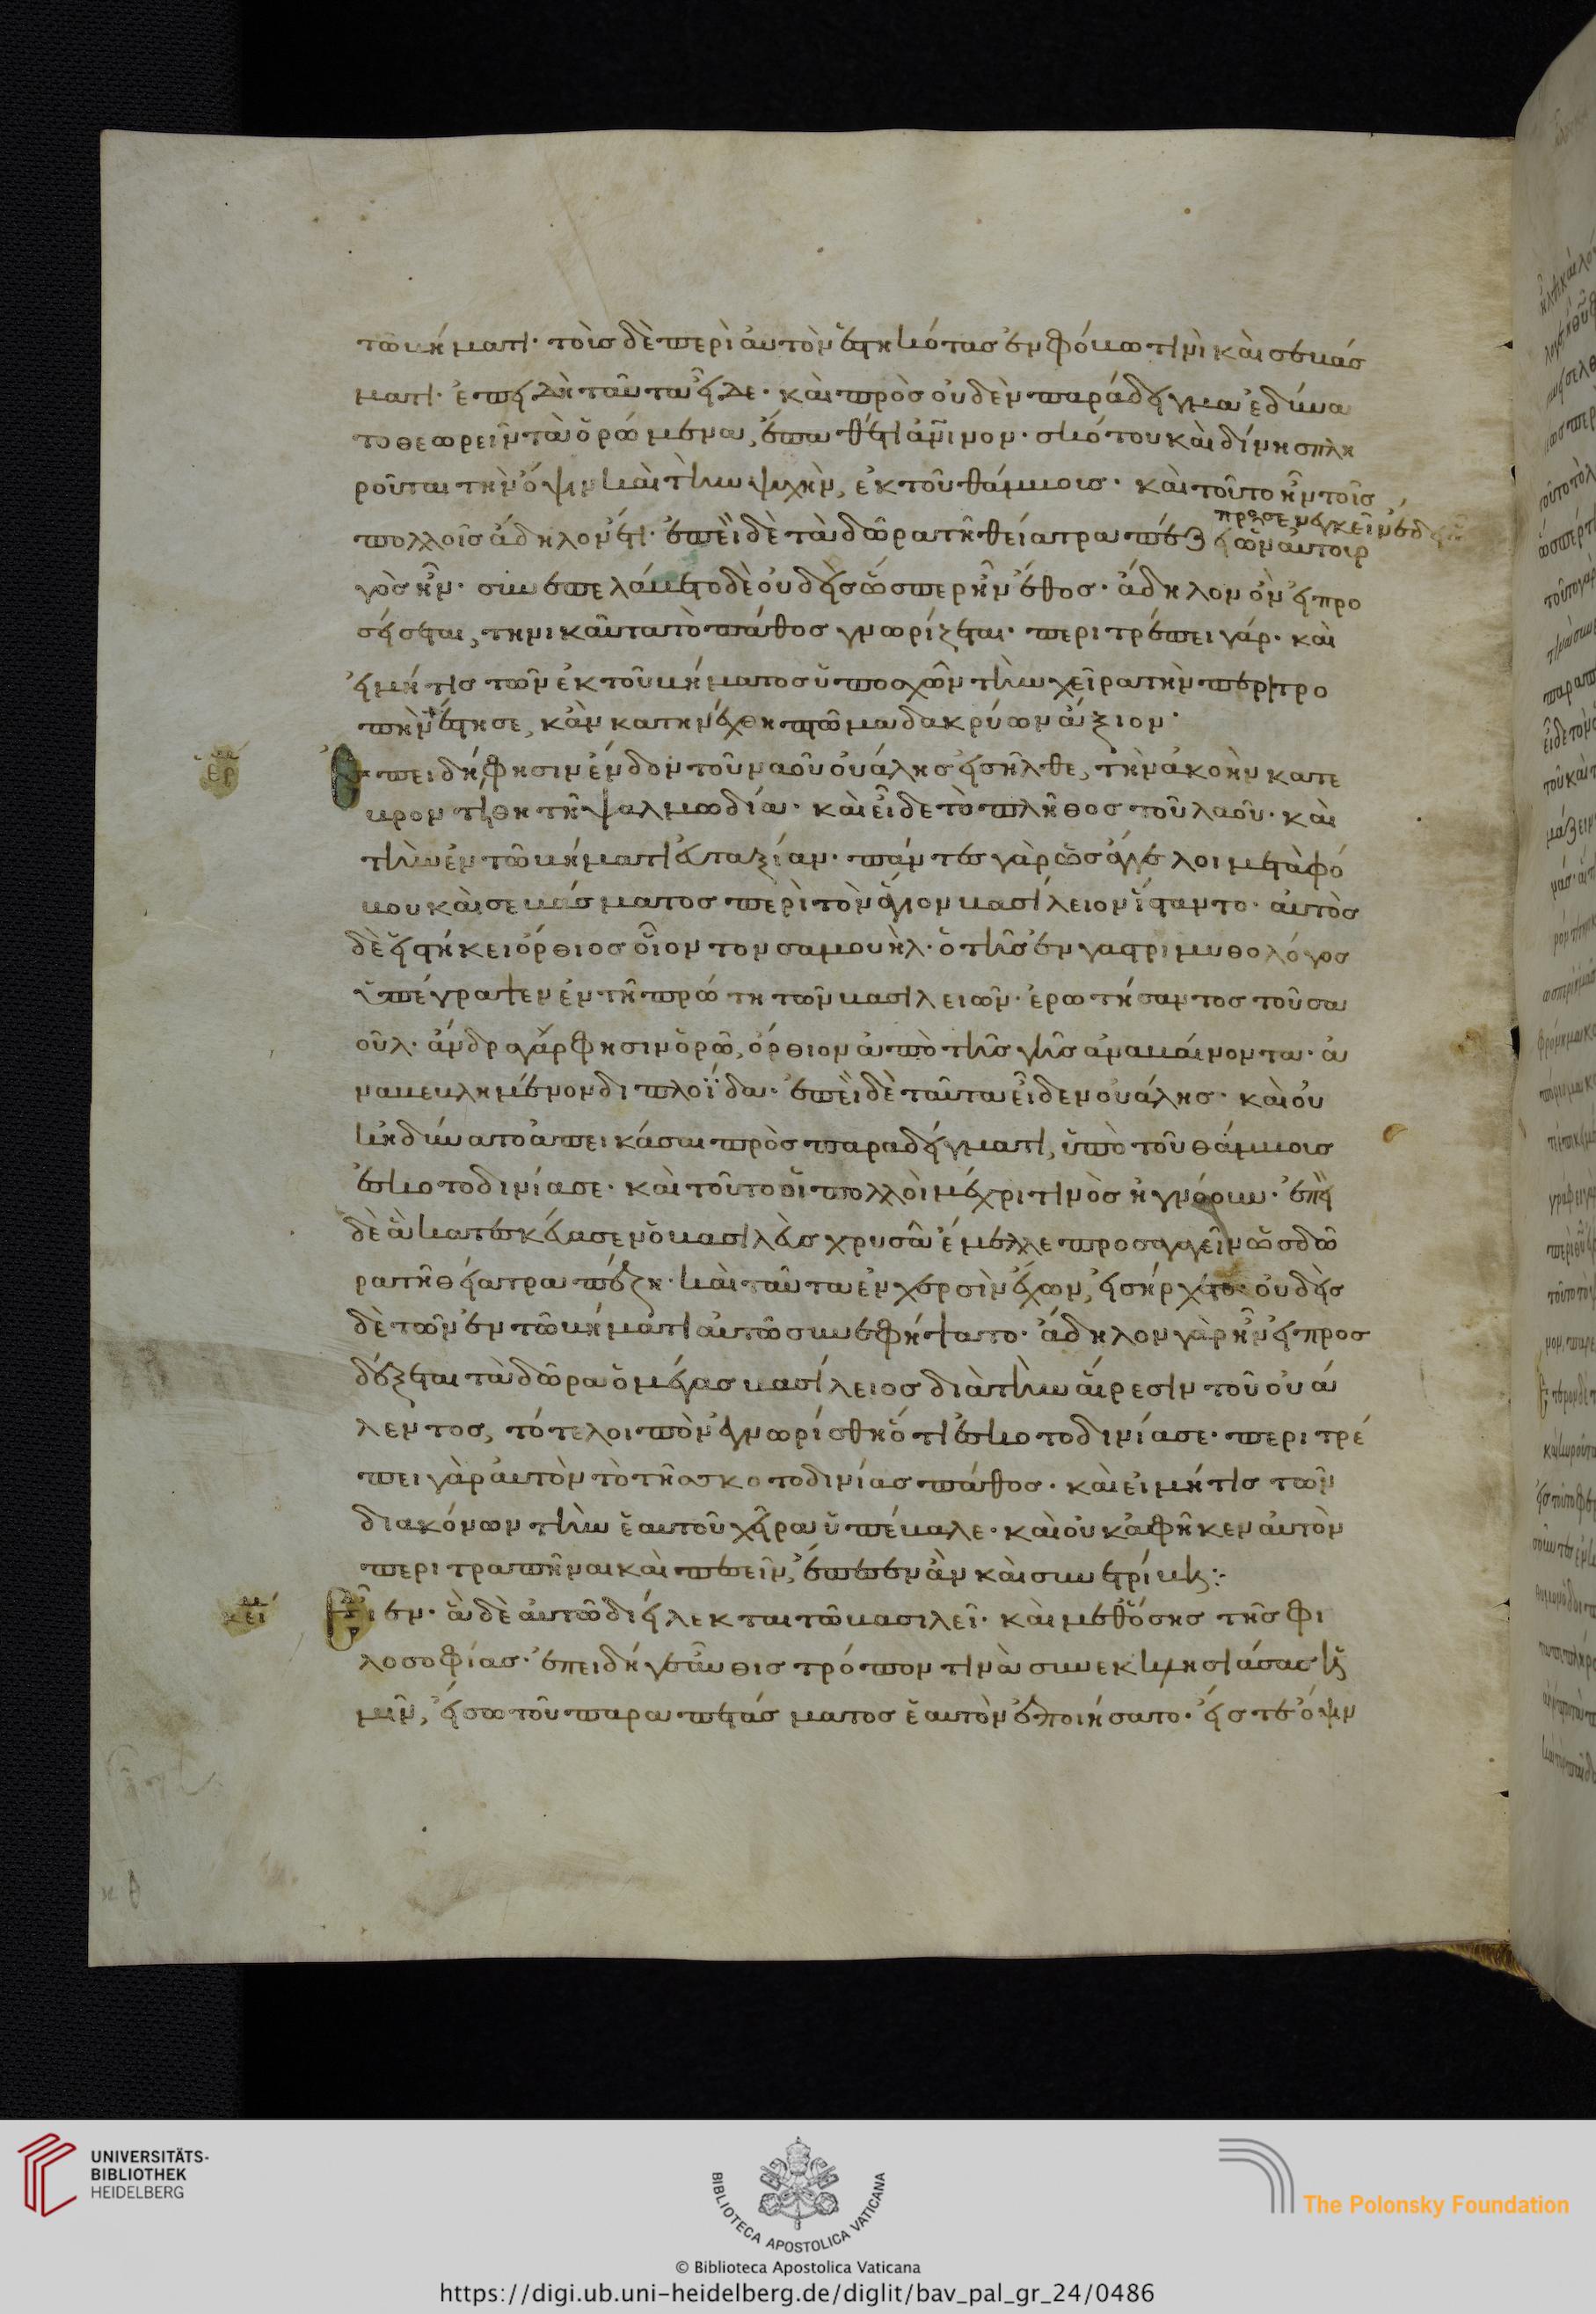 τῶ βήματι· τοὺς δὲ περὶ αὐτὸν ἑστηκότας ἐν φόβω τινὶ καὶ σεβάσ
ματι· ἐπειδὴ ταῦτα εἶδε· καὶ πρὸς οὐδὲν παράδειγμα ἐδύνα
το θεωρεῖν τὰ ὁρώμενα, ἔπαθέ τι ἀνθρώπινον· σκότου καὶ δίνης πλη
ροῦται τὴν ὄψιν καὶ τὴν ψυχὴν, ἐκ τοῦ θάμβους· καὶ τοῦτο ἦν τοῖς
πολλοῖς ἄδηλον ἔτι· ἐπεὶ δὲ τὰ δῶρα τῆ θεία τραπέζη
προσενεγκεῖν ἔδει
ὧν αὐτουρ
γὸς ἦν· συνεπελάβετο δὲ οὐδεὶς ὥσπερ ἦν ἔθος· ἄδηλον ὂν εἰ προ
σήσεται, τηνικαῦτα τὸ πάθος γνωρίζεται· περιτρέπει γάρ· καὶ
εἰ μή τις τῶν ἐκ τοῦ βήματος ὑποσχὼν τὴν χεῖρα τὴν περιτρο
πὴν ἔστησε, κἂν κατηνέχθη πτῶμα δακρύων ἄξιον·
ἑρμη
Ἐπειδή, φησιν ἔνδον τοῦ ναοῦ οὐάλης εἰσῆλθε, τὴν ἀκοὴν κατε
βροντήθη τῆ ψαλμωδία· καὶ εἶδε τὸ πλῆθος τοῦ λαοῦ· καὶ
τὴν ἐν τῶ βήματι εὐταξίαν· πάντες γὰρ ὡς ἄγγελοι μετὰ φό
βου καὶ σεβάσματος περὶ τὸν ἅγιον βασίλειον ἵσταντο· αὐτὸς
δὲ εἱστήκει ὄρθιος οἷον τον σαμουὴλ· ὁ τῆς ἐν γαστριμυθολόγος
ὑπέγραψεν ἐν τῆ πρώτη τῶν βασιλειῶν· ἐρωτήσαντος τοῦ σα
οῦλ· ἄνδρα γάρ φησιν ὁρῶ, ὄρθιον ἀπὸ τῆς γῆς ἀναβαίνοντα· ἀ
ναβεβλημένον διπλοΐδα· ἐπεὶ δὲ ταῦτα εἶδεν οὐάλης· καὶ οὐ
κ ἠδύνατο ἀπεικάσαι πρὸς παραδείγματι, ὑπὸ τοῦ θάμβους
ἐσκοτοδινίασε· καὶ τοῦτο οἱ πολλοὶ μέχρι τινὸς ἠγνόουν· ἐπεὶ
δὲ ἃ κατεσκεύασεν ὁ βασιλεὺς χρυσᾶ ἔμελλε προσαγαγεῖν ὡς δῶ
ρα τῆ θεία τραπέζη· καὶ ταῦτα ἐν χερσὶν ἔχων, εἰσήρχετο· οὐδεὶς
δὲ τῶν ἐν τῶ βήματι αὐτῶ συνεφήψατο· ἄδηλον γὰρ ἦν εἰ προσ
δέξεται τὰ δῶρα ὁ μέγας βασίλειος διὰ τὴν αἵρεσιν τοῦ οὐά
λεντος, τότε λοιπὸν ἐγνωρίσθη ὅτι ἐσκοτοδινίασε· περιτρέ
πει γὰρ αὐτὸν τὸ τῆς σκοτοδινίας πάθος· καὶ εἰ μή τις τῶν
διακόνων τὴν ἑαυτοῦ χεῖρα ὑπέβαλε· καὶ οὐκ ἀφῆκεν αὐτὸν
περιτραπῆναι καὶ πεσεῖν, ἔπεσεν ἂν καὶ συνετρίβη:·
κεί
Εἶεν· ἃ δὲ αὐτῶ διείλεκται τῶ βασιλεῖ· καὶ μεθ' ὅσης τῆς φι
λοσοφίας· ἐπειδή γε αὖθις τρόπον τινὰ συνεκκλησιάσας ἡ
μῖν, εἴσω τοῦ παραπετάσματος ἑαυτὸν ἐποιήσατο· εἴς τε ὄψιν
UNIVERSITÄTS-
BIBLIOTHEK
HEIDELBERG
BIBLIOTECA APOSTOLICA VATICANA
© Biblioteca Apostolica Vaticana
The Polonsky Foundation
https://digi.ub.uni-heidelberg.de/diglit/bav_pal_gr_24/0486